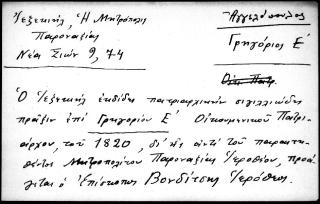 Ἰεζεκιήλ, Ἡ Μητρόπολις
Παροναξίας
Νέα Σιών 9, 74
Ἀγγελόπουλος
Γρηγόριος Ε΄
Οἰκ. Πατρ.
Ὁ Ἰεζεκιὴλ ἐκδίδει πατριαρχικὴν σιγιλλιώδη
πρᾶξιν ἐπὶ Γρηγορίου Ε΄ Οἰκουμενικοῦ Πατρι-
άρχου, τοῦ 1820, δι' ἧς ἀντὶ τοῦ παραιτη-
θέντος Μητροπολίτου Παροναξίας Ἱεροθέου, προά-
γεται ὁ Ἐπίσκοπος Βονδίτσης Ἱερόθεος.